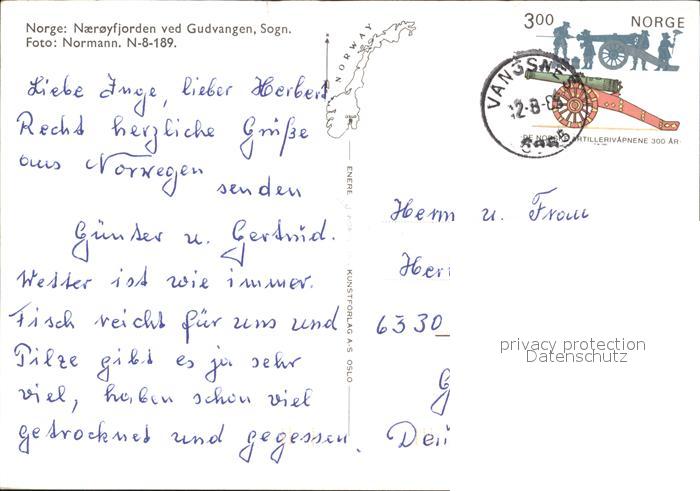 Norge: Nærøyfjorden ved Gudvangen, Sogn.
Foto: Normann. N-8-189.
NORWAY
3.00 NORGE
VANGSNES
12-8-85
5865
DE NORSKE ARTILLERIVÅPNENE 300 ÅR
Liebe Inge, lieber Herbert
Recht herzliche Grüße
aus Norwegen
senden
Günter u. Gertrud.
Wetter ist wie immer.
Fisch reicht für uns und
Pilze gibt es ja sehr
viel, haben schon viel
getrocknet und gegessen.
ENERE
KUNSTFORLAG A·S OSLO
Herrn u. Frau
Her
6330
G
Deu
privacy protection
Datenschutz